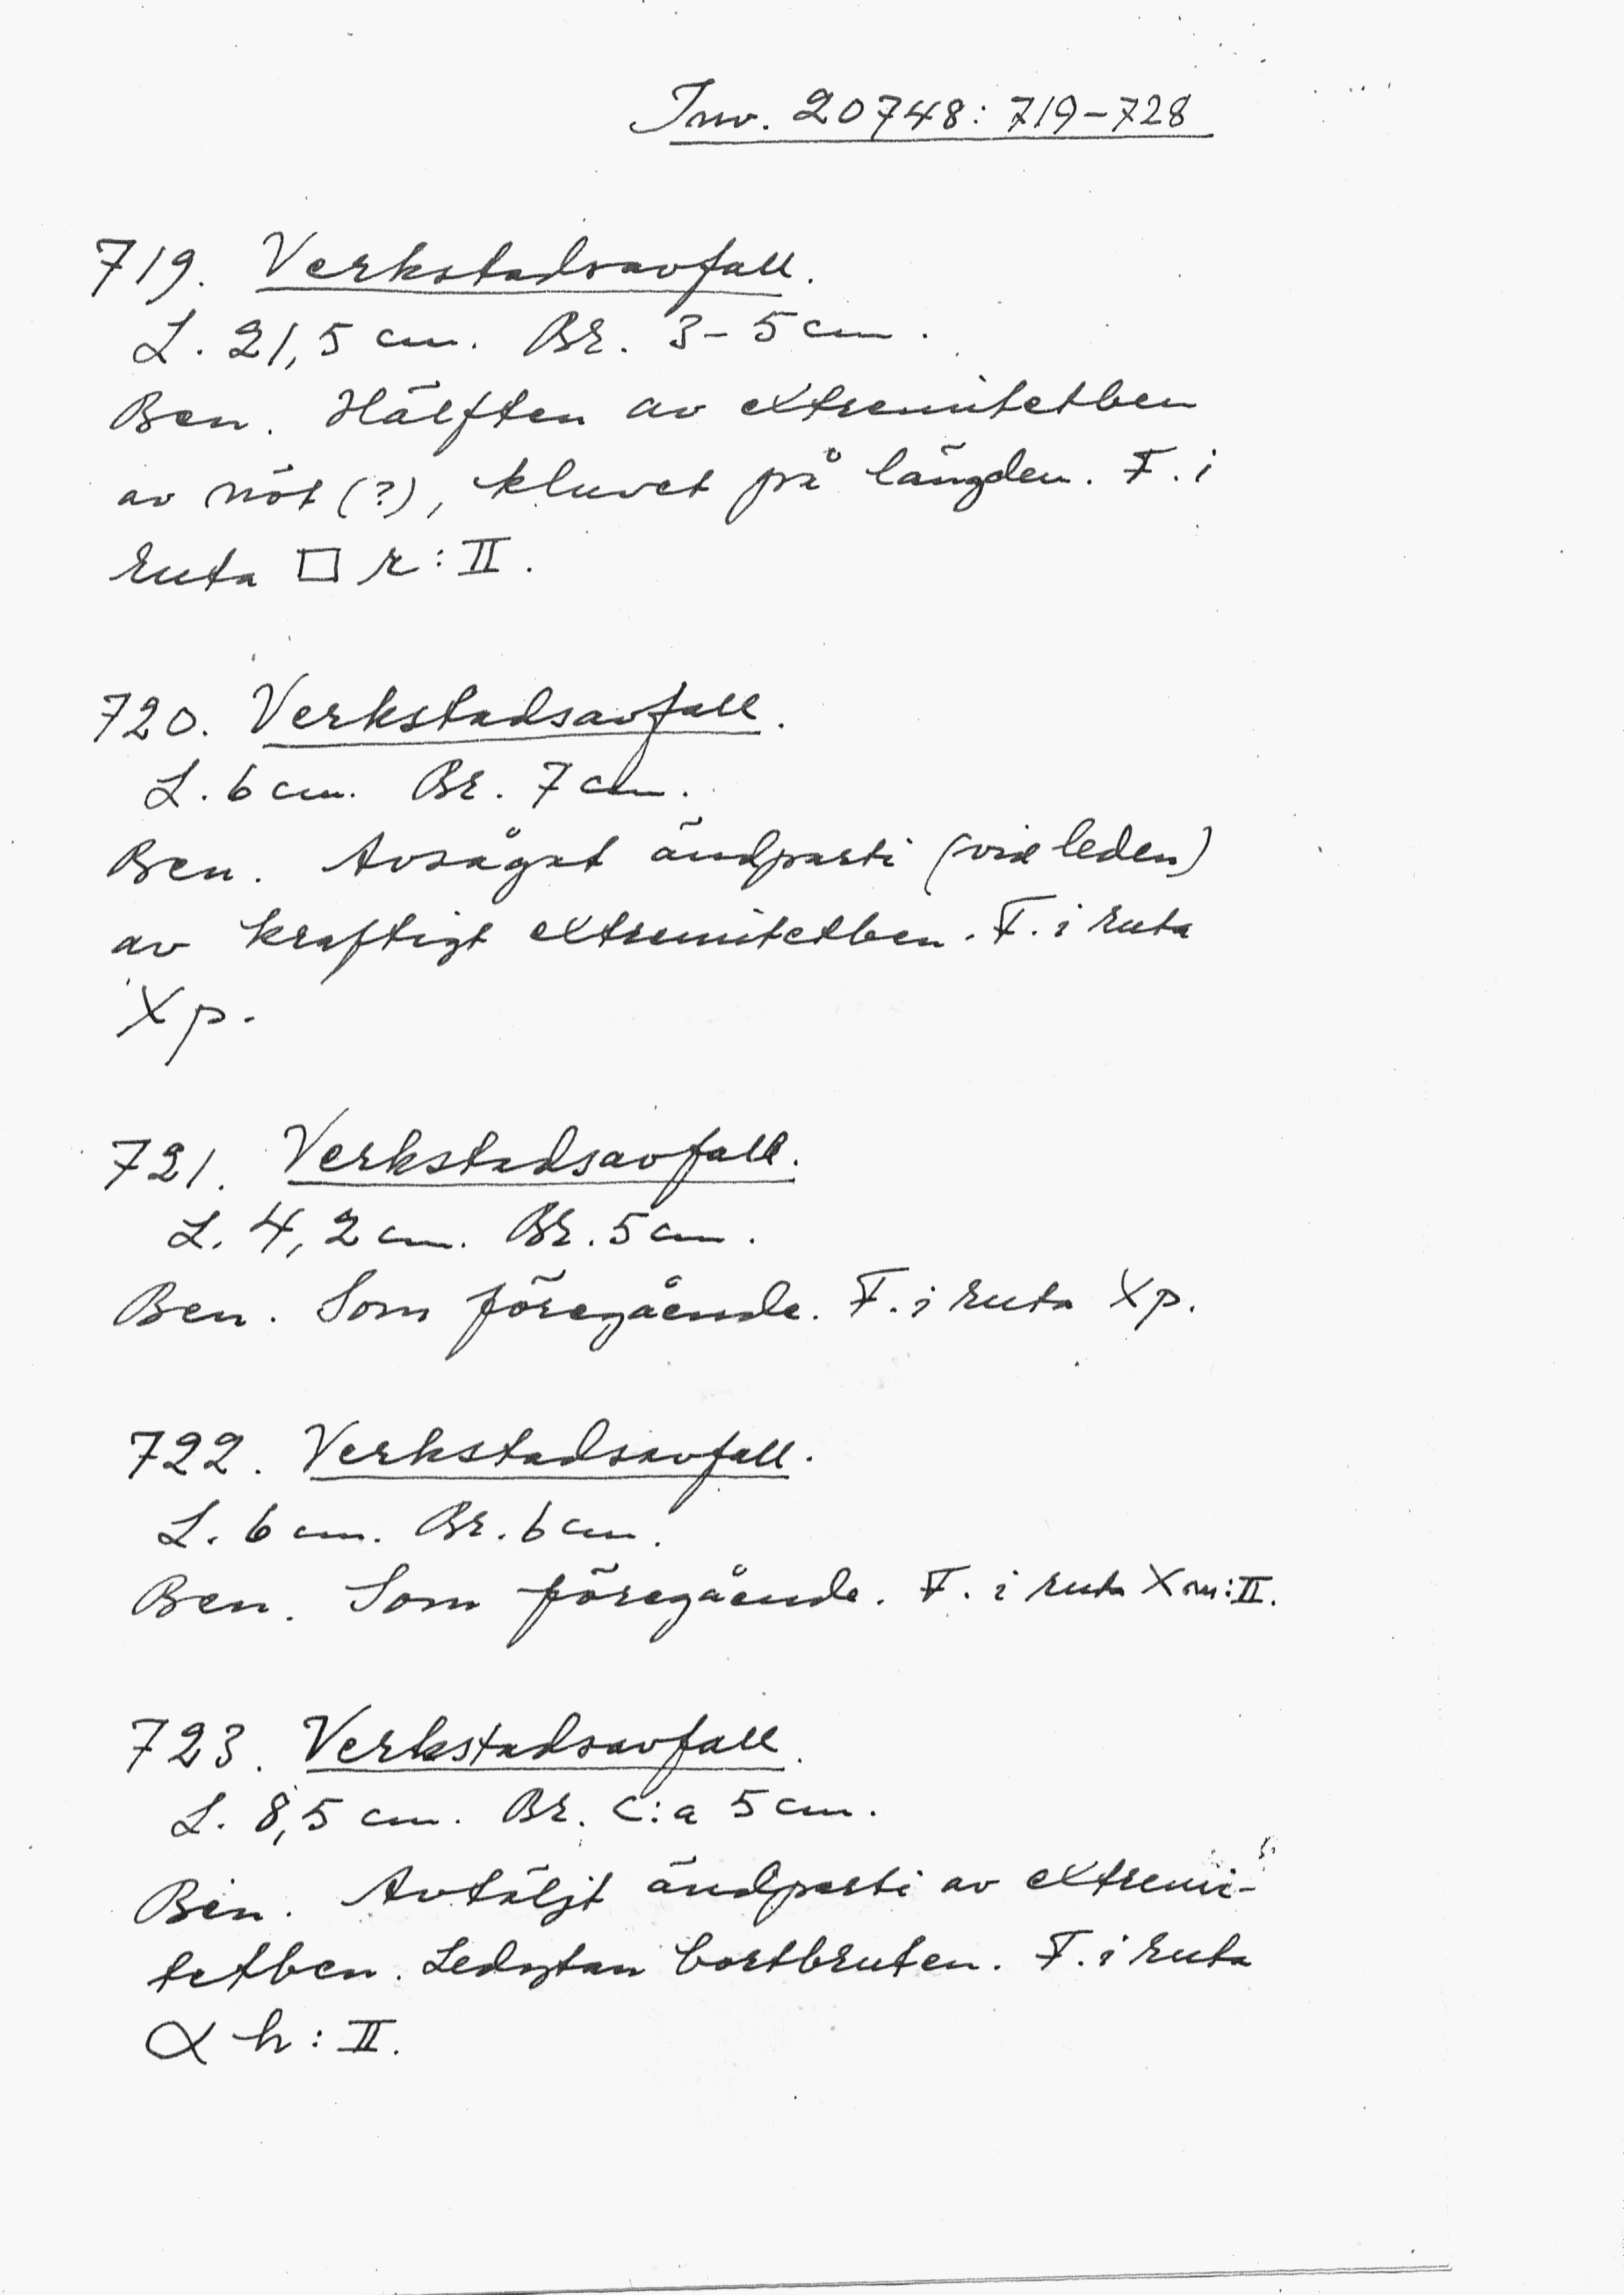 Inv. 20748: 719-728
719. Verkstadsavfall.
L. 21,5 cm. Br. 3-5 cm.
Ben. Hälften av extremitetben
av nöt (?), kluvet på längden. F. i
ruta □ r: II.
720. Verkstadsavfall.
L. 6 cm. Br. 7 cm.
Ben. Avsågat ändparti (vid leden)
av kraftigt extremitetben. F. i ruta
X p.
721. Verkstadsavfall.
L. 4,2 cm. Br. 5 cm.
Ben. Som föregående. F. i ruta X p.
722. Verkstadsavfall.
L. 6 cm. Br. 6 cm.
Ben. Som föregående. F. i ruta X m: II.
723. Verkstadsavfall.
L. 8,5 cm. Br. c:a 5 cm.
Ben. Avtäljt ändparti av extremi-
tetben. Ledytan bortbruten. F. i ruta
α h: II.